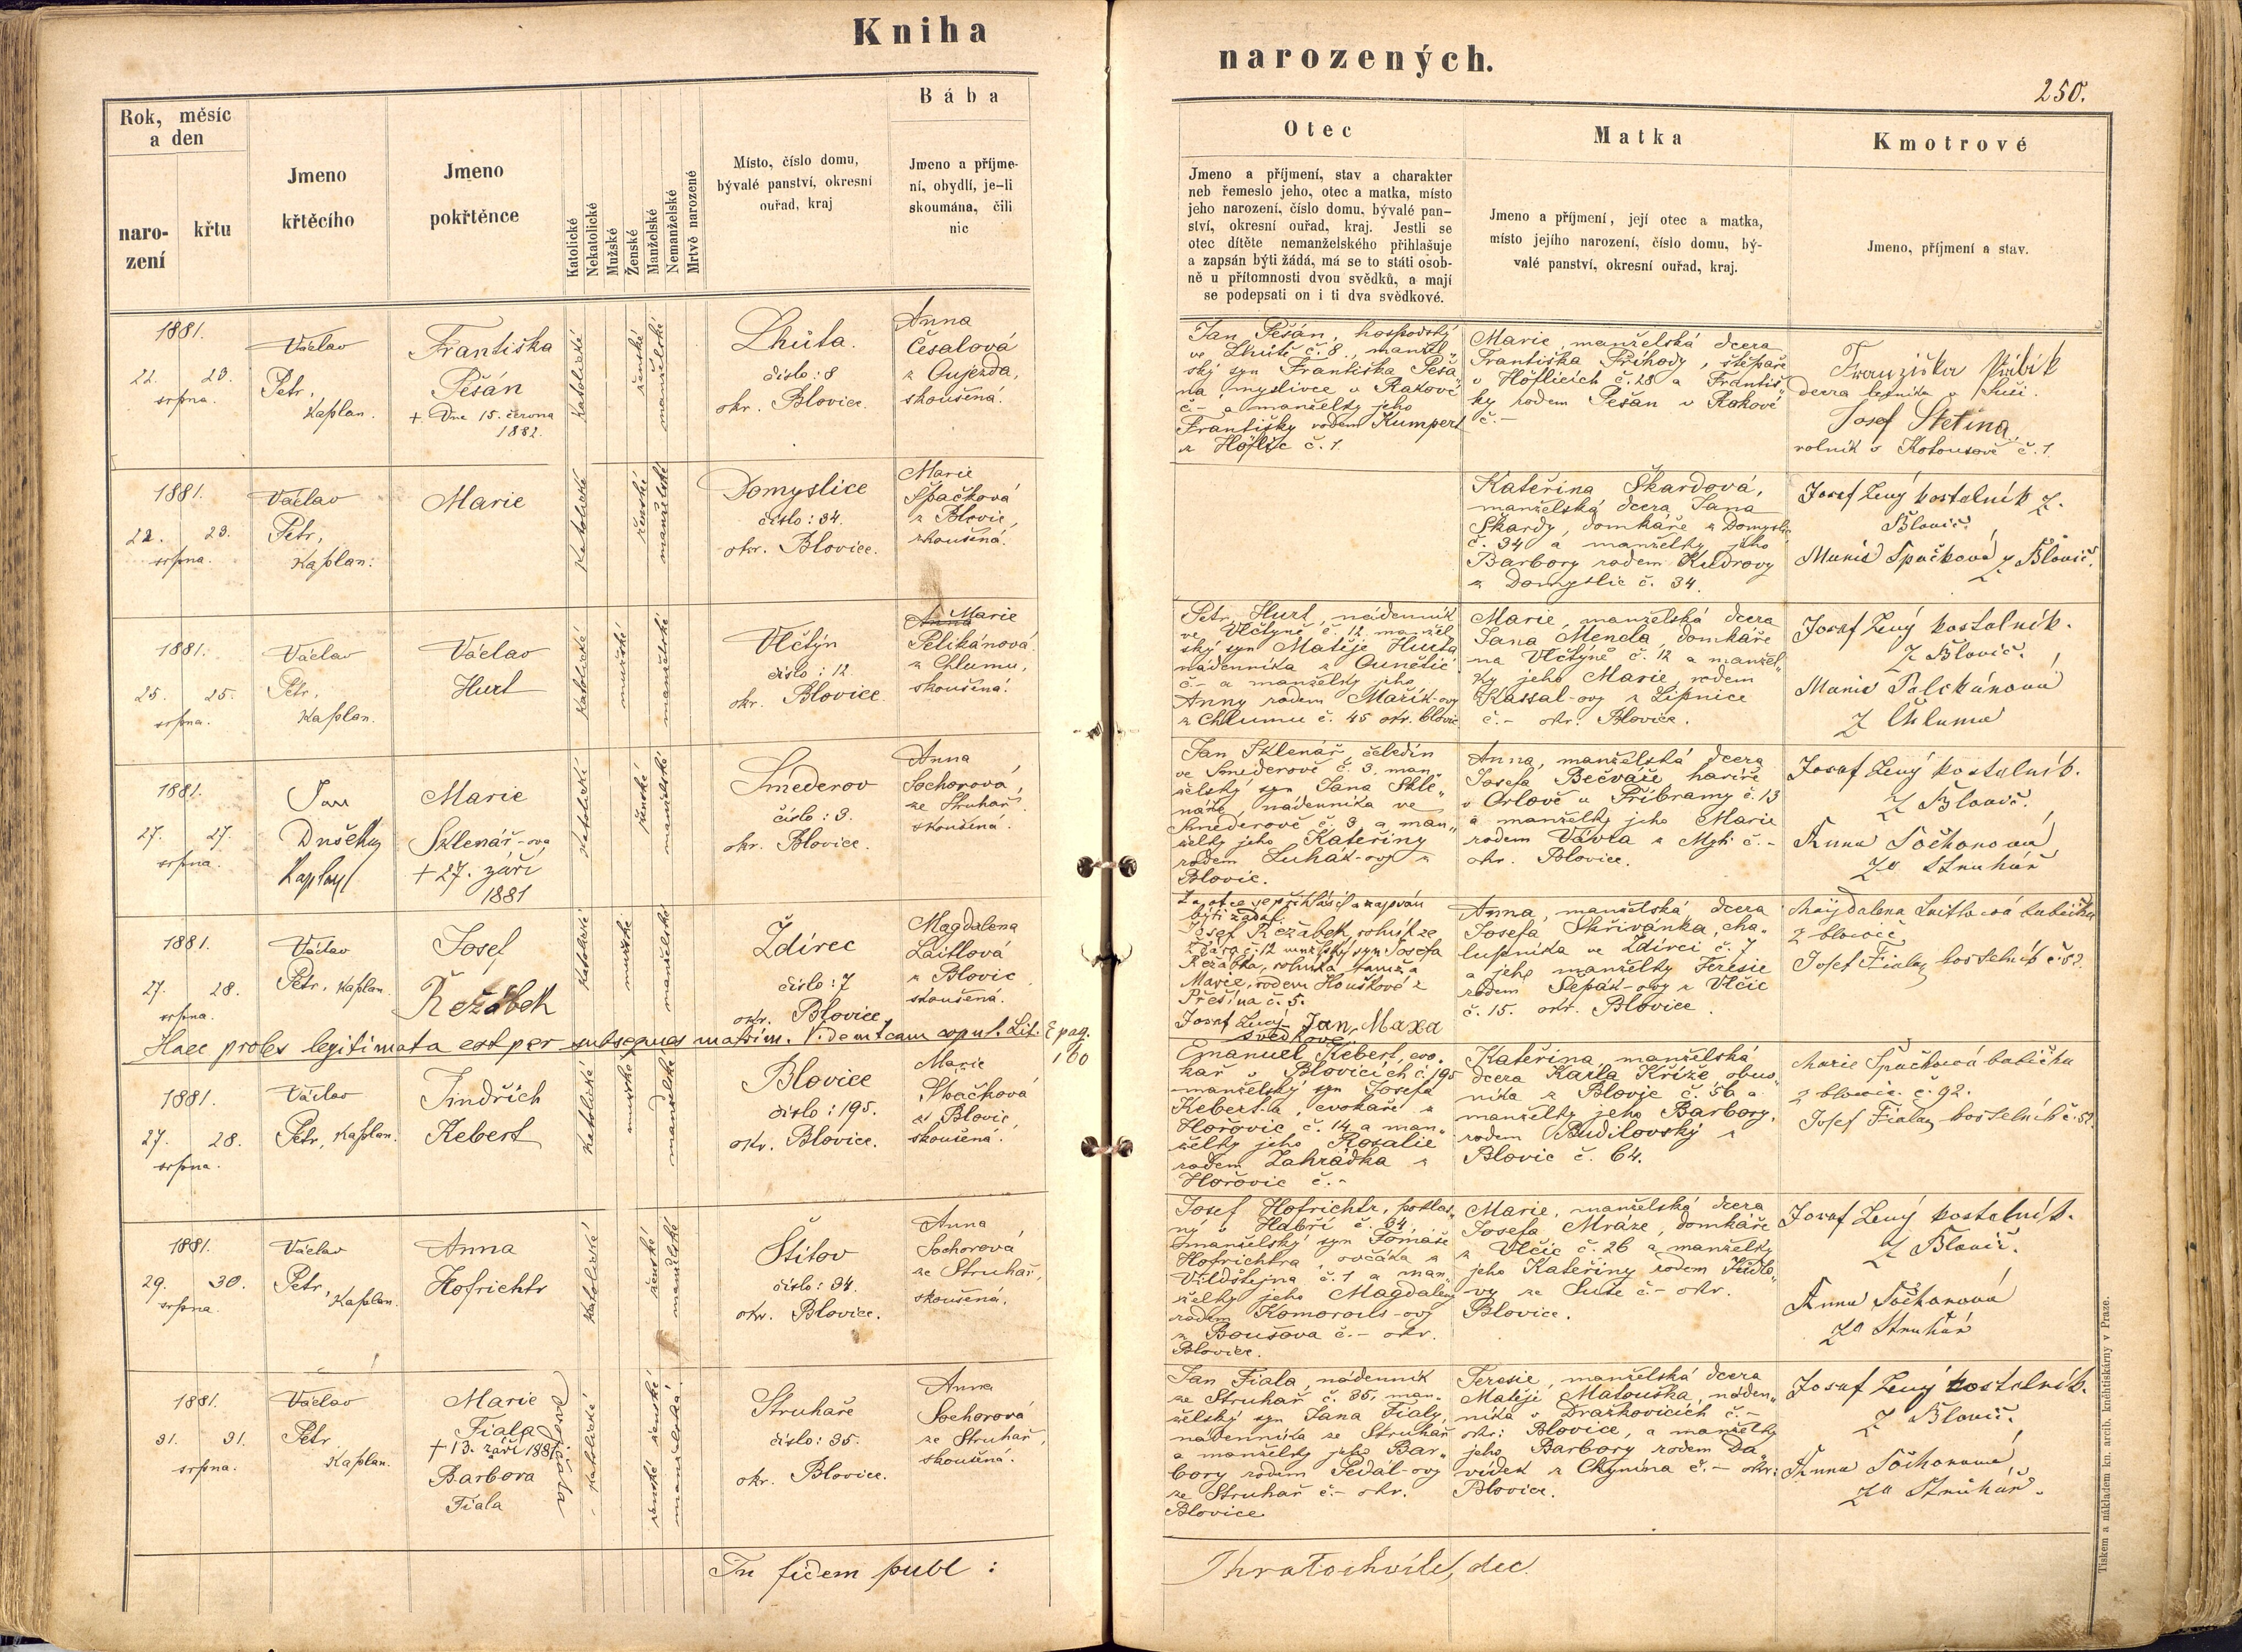 Kniha
narozených.
250.
Rok, měsíc
a den
naro-
zení
křtu
Jmeno
křtěcího
Jmeno
pokřtěnce
Katolické
Nekatolické
Mužské
Ženské
Manželské
Nemanželské
Mrtvě narozené
Místo, číslo domu,
bývalé panství, okresní
ouřad, kraj
Bába
Jmeno a příjme-
ní, obydlí, je-li
skoumána, čili
nic
Otec
Jmeno a příjmení, stav a charakter
neb řemeslo jeho, otec a matka, místo
jeho narození, číslo domu, bývalé pan-
ství, okresní ouřad, kraj. Jestli se
otec dítěte nemanželského přihlašuje
a zapsán býti žádá, má se to státi osob-
ně u přítomnosti dvou svědků, a mají
se podepsati on i ti dva svědkové.
Matka
Jmeno a příjmení, její otec a matka,
místo jejího narození, číslo domu, bý-
valé panství, okresní ouřad, kraj.
Kmotrové
Jmeno, příjmení a stav.
1881.
22. 23.
srpna.
Václav
Petr,
Kaplan.
Františka
Pešán
+ Dne 15. června
1882.
katolické
ženské
manželské
Lhůta.
číslo: 8
okr. Blovice.
Anna
Česalová
z Oujezda,
skoušená.
Jan Pešán, hospodský
ve Lhůtě č. 8., manžel„
ský syn Františka Pešá„
na, myslivce v Rakové
č– a manželky jeho
Františky rodem Kumpert
z Höflic č. 1.
Marie, manželská dcera
Františka Příhody, štěpaře
v Höflicích č. 28 a Františ„
ky rodem Pešán v Rakové
č.–
dcera
Josef Štětina
rolník v Kotousově č. 1.
1881.
22. 23.
srpna.
Václav
Petr,
Kaplan.
Marie
katolické
ženské
manželské
Domyslice
číslo: 34.
okr. Blovice.
Marie
Špačková
z Blovic,
zkoušená.
Kateřina Škardová,
manželská dcera Jana
Škardy, domkáře z Domyslic
č. 34 a manželky jeho
Barbory rodem Kudrovy
z Domyslic č. 34.
Josef Lený kostelník z
Blovic.
Marie Špačková z Blovic.
1881.
25. 25.
srpna.
Václav
Petr,
Kaplan.
Václav
Hurt
katolické
mužské
manželské
Vlčtýn
číslo: 12.
okr. Blovice
Anna Marie
Pelikánová
z Chlumu,
skoušená.
Petr Hurt, nádenník
ve Vlčtýně č. 12, manžel
ský syn Matěje Hurta
nádenníka z Ounětic
č– a manželky jeho
Anny rodem Mařík-ovy
z Chlumu č. 45 okr. Blovic
Marie, manželská dcera
Jana Mencla, domkáře
na Vlčtýně č. 12 a manžel„
ky jeho Marie, rodem
Kassal-ovy z Lipnice
č.– okr. Blovice.
Josef Lený kostelník.
z Blovic.
Marie
z Chluma
1881.
27. 27.
srpna.
Jan
Dušek
Kaplan
Marie
Sklenář-ova
+ 27. září
1881
katolické
ženské
manželské
Směderov
číslo: 3.
okr. Blovice.
Anna
Sochorová,
ze Struhař.
skoušená.
Jan Sklenář, čeledín
ve Směderově č. 3, man„
želský syn Jana Skle„
náře, nádenníka ve
Směderově č. 3 a man„
želky jeho Kateřiny
rodem Luhák-ovy z
Blovic.
Anna, manželská dcera
Josefa Bečváře, havíře
v Orlově u Příbramy č. 13
a manželky jeho Marie
rodem Vávra z Mýti č.–
okr. Blovice.
Josef Lený kostelník.
z Blovic.
Anna Sochorová
ze Struhař
1881.
27. 28.
srpna.
Václav
Petr, Kaplan
Josef
Řežábek
katolické
mužské
manželské
Ždírec
číslo: 7
okr. Blovice.
Magdalena
Laitlová
z Blovic
skoušená.
Za otce se přihlásil a zapsán
býti žádal:
Josef Řežábek, rolník ze
Ždírce č. 12 manželský syn Josefa
Řežábka, rolníka tamže a
Marie, rodem Houškové z
Přešína č. 5.
Josef Lený Jan Maxa
svědkové
Anna, manželská dcera
Josefa Skřivánka, cha„
lupníka ve Ždírci č. 7
a jeho manželky Teresie
rodem Slepák-ovy z Vlčic
č. 15. okr. Blovice.
Magdalena Laitlová babička
z Blovic
Josef Fiala, kostelník č. 52.
Haec proles legitimata est per subsequens matrim. Videntcam copul. Lit. E pag.
160
1881.
27. 28.
srpna.
Václav
Petr, Kaplan.
Jindřich
Kebert
katolické
mužské
manželské
Blovice
číslo: 195.
okr. Blovice.
Marie
Špačková
z Blovic,
skoušená.
Emanuel Kebert, cvo„
kař v Blovicích č. 195
manželský syn Josefa
Keberta, cvokaře z
Hořovic č. 14 a man„
želky jeho Rosalie
rodem Zahrádka z
Hořovic č.–
Kateřina, manželská
dcera Karla Kříže obuv„
níka z Blovic č. 56 a
manželky jeho Barbory,
rodem Budilovský z
Blovic č. 64.
Marie Špačková babička
z Blovic č. 92.
Josef Fiala, kostelník č. 52.
1881.
29. 30.
srpna.
Václav
Petr,
Kaplan.
Anna
Hofrichtr
katolické
ženské
manželské
Štítov
číslo: 34.
okr. Blovice.
Anna
Sochorová
ze Struhař,
skoušená.
Josef Hofrichtr,
v Habří č. 34,
manželský syn Tomáše
Hofrichtra, ovčáka z
Vildštejna č. 1 a man„
želky jeho Magdaleny
rodem Komorous-ovy
z Boušova č.– okr.
Blovice.
Marie, manželská dcera
Josefa Mráze, domkáře
z Vlčic č. 26 a manželky
jeho Kateřiny rodem
ze Sutě č.– okr.
Blovice.
Josef Lený kostelník.
z Blovic.
Anna Sochorová
ze Struhař
1881.
31. 31.
srpna.
Václav
Petr
Kaplan.
Marie
Fiala
+ 13. září 1881
a
Barbora
Fiala
katolické
ženské ženské
manželská
Struhaře
číslo: 35.
okr. Blovice.
Anna
Sochorová
ze Struhař,
skoušená.
Jan Fiala, nádenník
ze Struhař č. 35, man„
želský syn Jana Fialy,
nádenníka ze Struhař
a manželky jeho Bar„
bory rodem Pedál-ovy
ze Struhař č.– okr.
Blovice
Teresie, manželská dcera
Matěje Matouška, náden„
níka v Dražkovicích č.–
okr: Blovice, a manželky
jeho Barbory rodem Da„
vídek z Chynína č.– okr:
Blovice.
Josef Lený kostelník.
z Blovic.
Anna Sochorová
ze Struhař.
In fidem publ:
dec.
Tiskem a nákladem kn. arcib. kněhtiskárny v Praze.